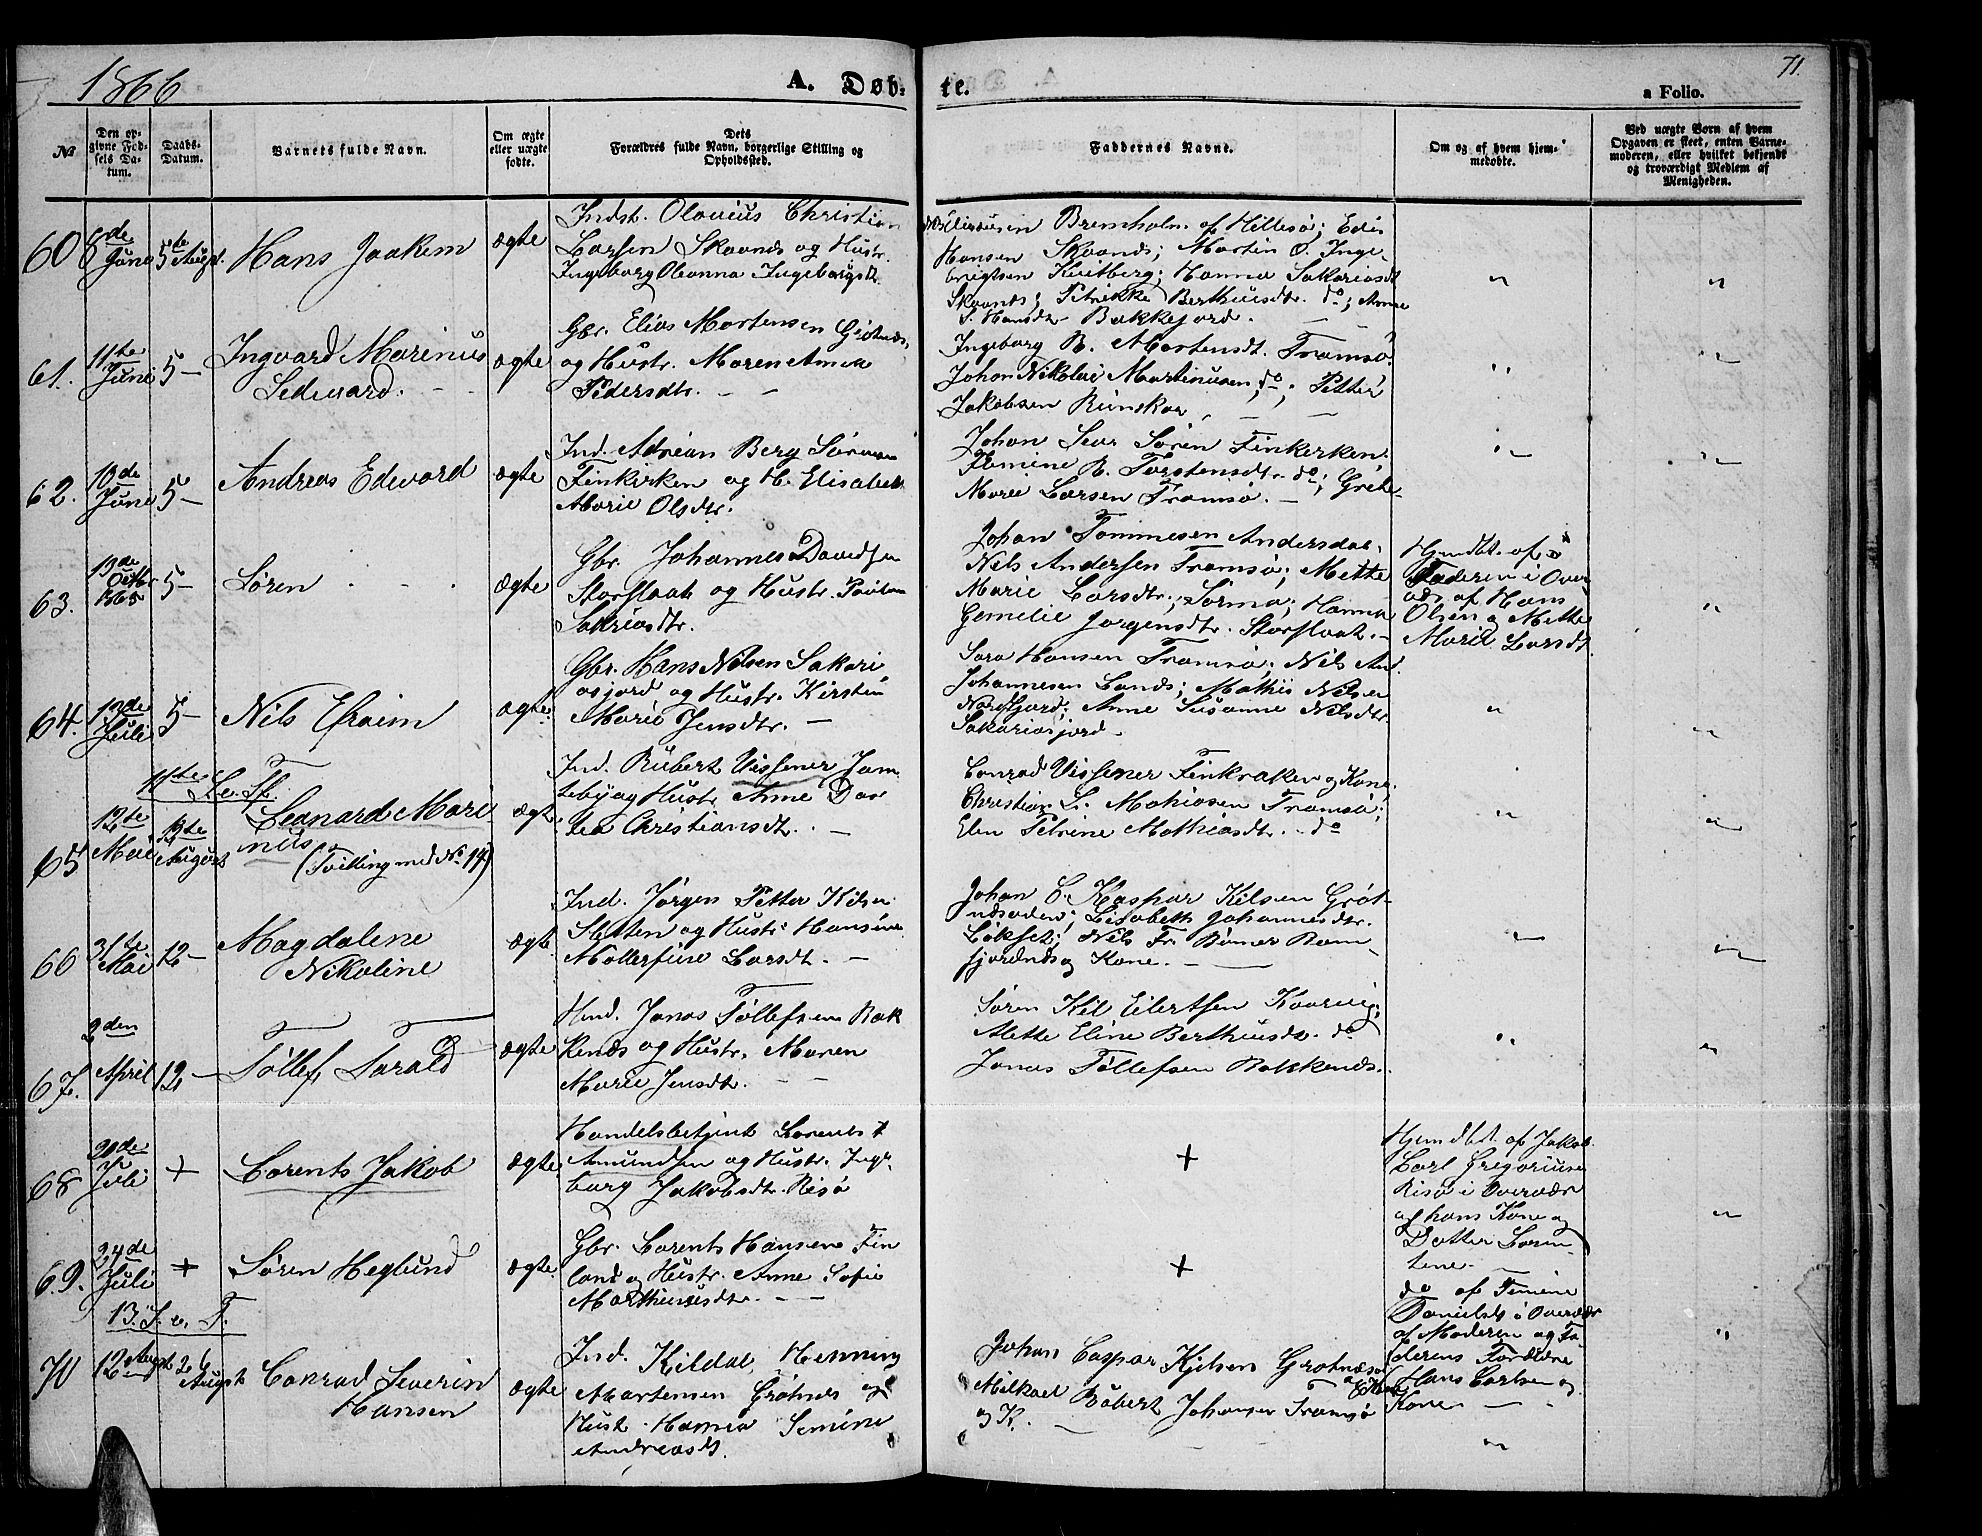 1866
A. Døb-
te.
71.
a Folio.
№
Den op-
givne Fød-
sels Da-
tum.
Daabs-
Datum.
Barnets fulde Navn.
Om ægte
eller uægte
fødte.
Dets
Forældres fulde Navn, borgerlige Stilling og
Opholdssted.
Faddernes Navne.
Om og af hvem hjem-
medøbte.
Ved uægte Børn af hvem
Opgaven er skeet, enten Barne-
moderen, eller hvilket bekjendt
og troværdigt Medlem af
Menigheden.
60
8de
Juni
5te Augst.
Hans Joakim
ægte
Indst. Olavius Christian
Larsen Skaands og Hustr.
Ingeborg Oleanna Ingeborgsdtr.
Bremholm af Hillesø; Edis
Hansen Skaands; Martin O. Inge-
brigtsen Kvitberg; Hanna Sakariasdt
Skaands; Petrikke Berthusdtr. do; Anne
S. Hansdtr Bakkejord.
61.
11te
Juni
5 –
Ingvard Marinus
Sedevard.
ægte
Gbr. Elias Mortensen Grøtnæs,
og Hustr. Maren Anna
Pedersdtr.
Ingeborg B. Mortensdt. Tromsø.
Johan Nikolai Martinusen, do; Petter
Jakobsen Runskar
62.
10de
Juni
5 –
Andreas Edvard
ægte
Ind. Adrian Berg Sørensen
Finkirken og H. Elisabet
Marie Olsdtr.
Johan Søren Finkerken.
Torstensdtr. do; Grete
Marie Larsen Tromsø. –
63.
13de
Octbr
1865
5 –
Søren
ægte
Gbr. Johannes Davidsen
Storslaat og Hustr.
Sakriasdtr.
Johan Tommesen Andersdal.
Nils Andersen Tromsø; Mette
Marie Larsdtr.; Hanna
Gemelie Jørgensdtr. Storslaat. –
Hjemdbt. af
Faderen i Over-
vær af Hans
Olsen og Mette
Marie Larsdt.
64.
12de
Juli
5 –
Nils Efraim
ægte
Gbr. Hans Nilsen Sakari
asjord og Hustr. Kirsten
Marie Jensdtr. –
Sara Hansen Tromsø; Nils And.
Johannesen Lands; Mathis Nilsen
Nordfjord; Anne Susanne Nilsdtr.
Sakariasjord –
11te S. e. Tr.
65
12te
Mai
12te
August
Leonard Mari
nus
(Tvilling med No. 17)
ægte
Ind. Rubert Vissener Jom
teby og Hustr. Anne Dor
tea Christiansdtr. –
Conrad Vissener Finkraken og Kone.
Christian L. Mathiasen Tromsø;
Elen Petrine Mathiasdtr. do
66
31te
Mai
12 –
Magdalene
Nikoline
ægte
Ind. Jørgen Petter Kilsen
Sletten og Hustr. Hansine
Møllerfine Larsdt. –
Johan C. Kaspar Kilsen Grøt-
næsøden; Lisabeth Johannesdtr.
Løkset; Nils Fr. Rømer Ram-
fjordnæs og Kone. –
67.
2den
April
12 –
Tøllef Torald
ægte
Hmd. Jonas Tøllefsen Bak
kenæs og Hustr. Maren
Marie Jensdtr.
Søren Kil Eilertsen Kaarvig;
Mette Eline Berthusdt. do
Jonas Tøllefsen Bakkenæs.
68
20de
Juli
+
Lorents Jakob
ægte
Handelsbetjent Lorents
Amundsen og Hustr. Inge-
borg Jakobsdtr. Risø
+
Hjemdbt. af Jakob
Carl Gregoriusen
Risø i Overvær
af hans Kone og
Datter Loren-
tine. –
69.
24de
Juli
+
Søren Heglund
ægte
Gbr. Lorents Hansen Fin
land og Hustr. Anne Sofie
Marthinusdtr. –
+
do af Timine
Danielsd. i Overvær
af Moderen og Fa-
derens Forældre
Hans Carlsen og
Kone –
13. S. e. T.
70
12 Augst
26
Augst
Conrad Severin
Hansen
ægte
Ind. Kildal Henning
Martensen Grøtnæs og
Hust. Hanna Semine
Andreasdt.
Johan Caspar Kjilsen Grøtnæs
Mikael Robert Johansen Tromsø
og K. –